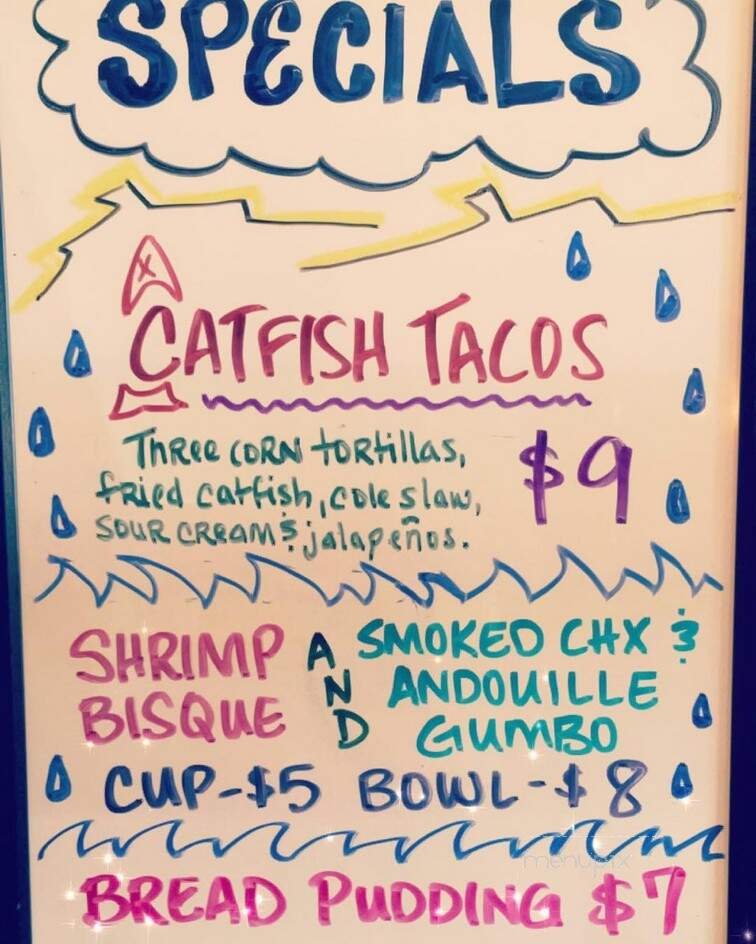 SPECIALS
X
CATFISH TACOS
Three corn tortillas,
fried catfish, cole slaw,
sour cream & jalapeños.
$9
SHRIMP
BISQUE
AND
SMOKED CHX &
ANDOUILLE
GUMBO
CUP-$5 BOWL-$8
menupix
BREAD PUDDING $7